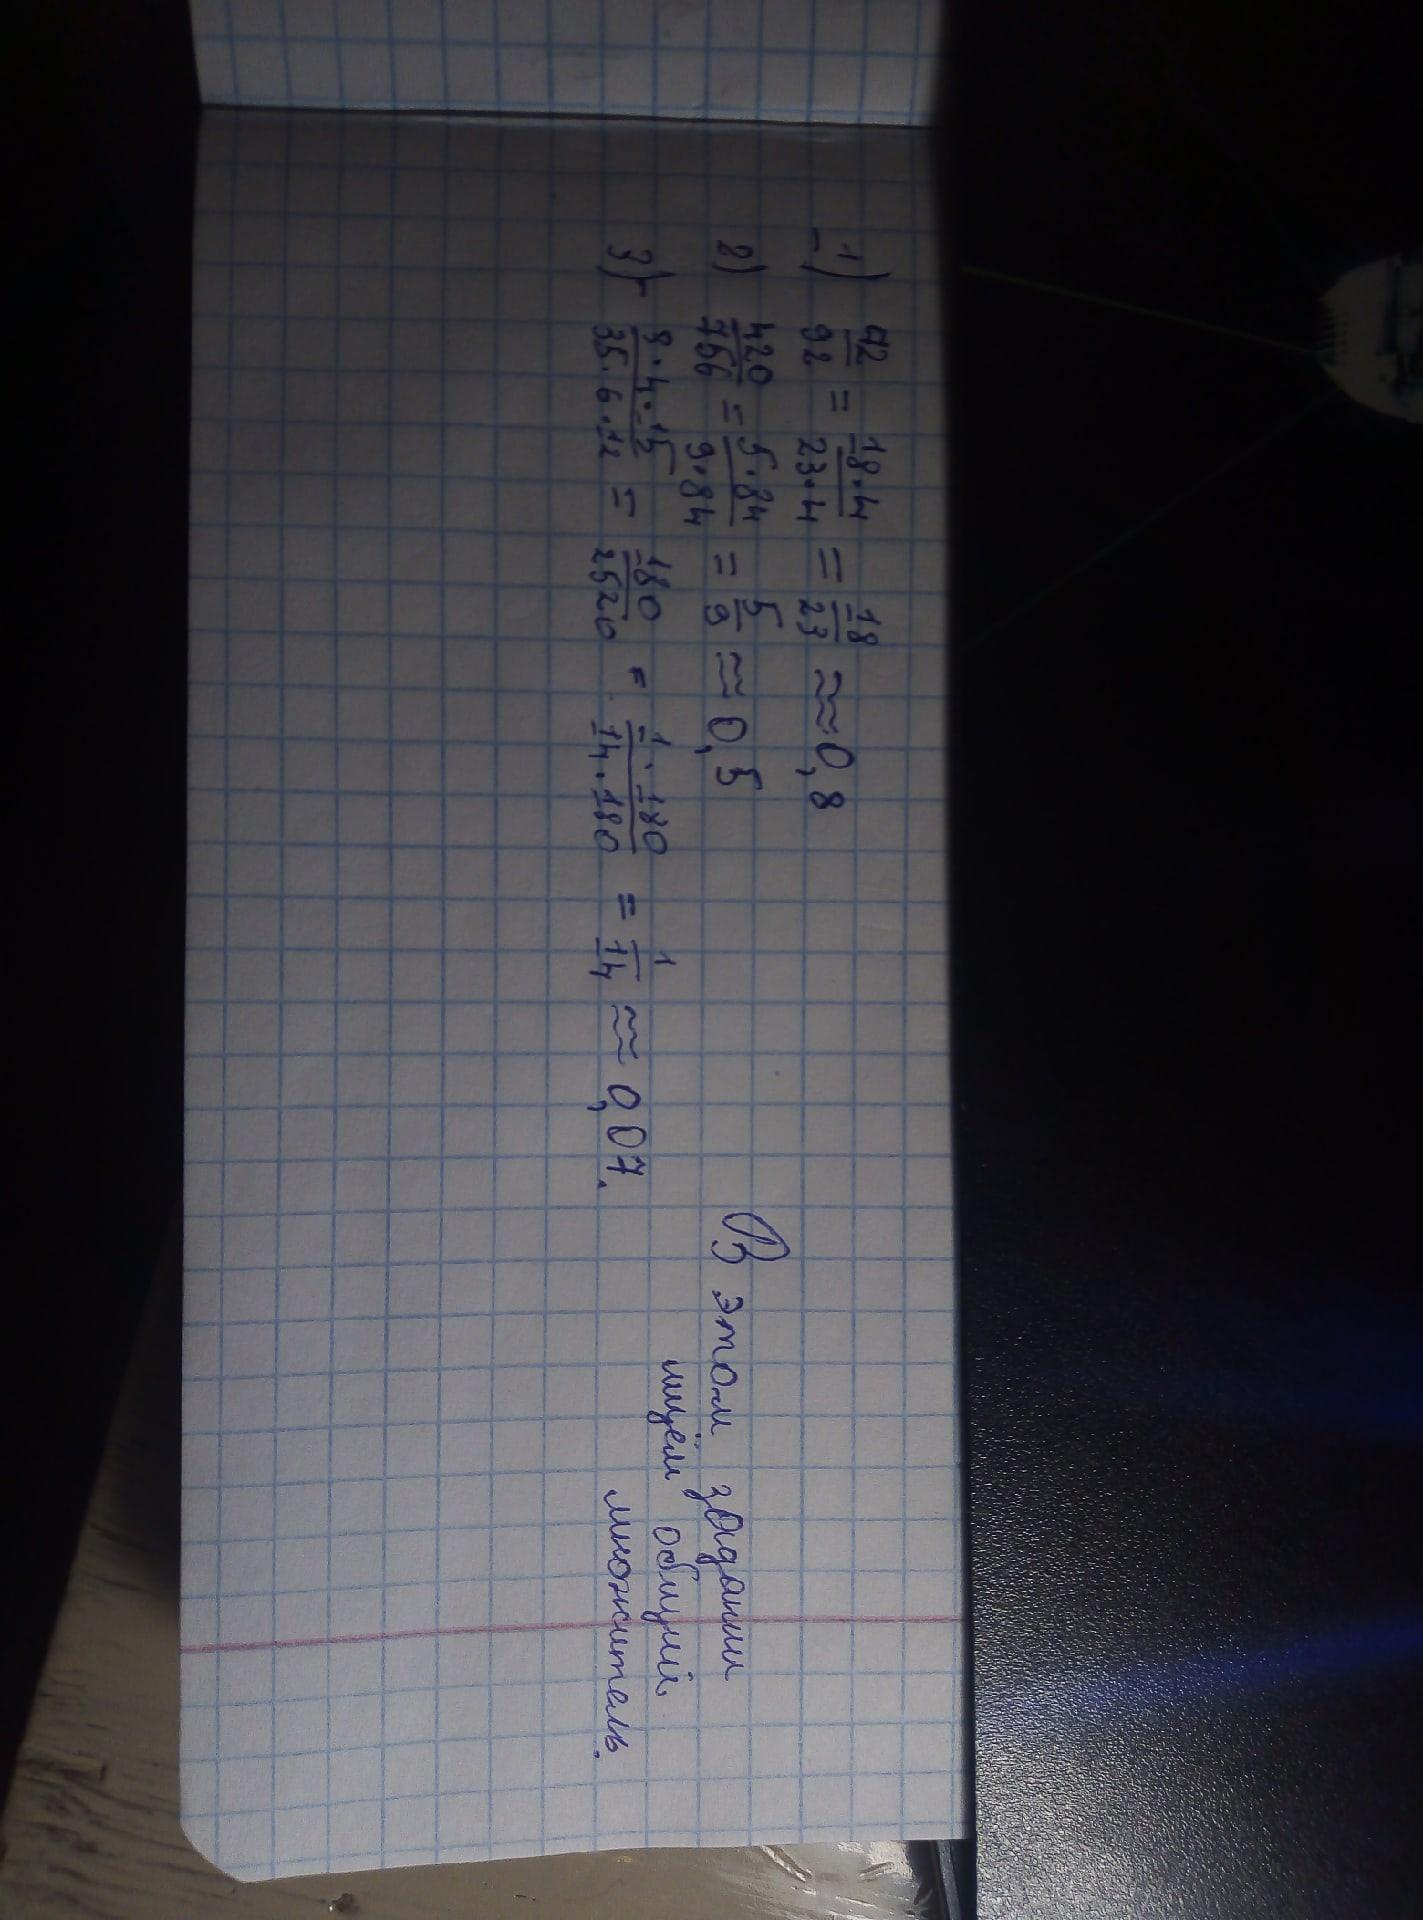 1) 72/92 = 18·4/23·4 = 18/23 ≈ 0,8
2) 420/756 = 5·84/9·84 = 5/9 ≈ 0,5
3) 3·4·15/35·6·12 = 180/2520 = 1·180/14·180 = 1/14 ≈ 0,07.
В этом задании
ищем общий
множитель.